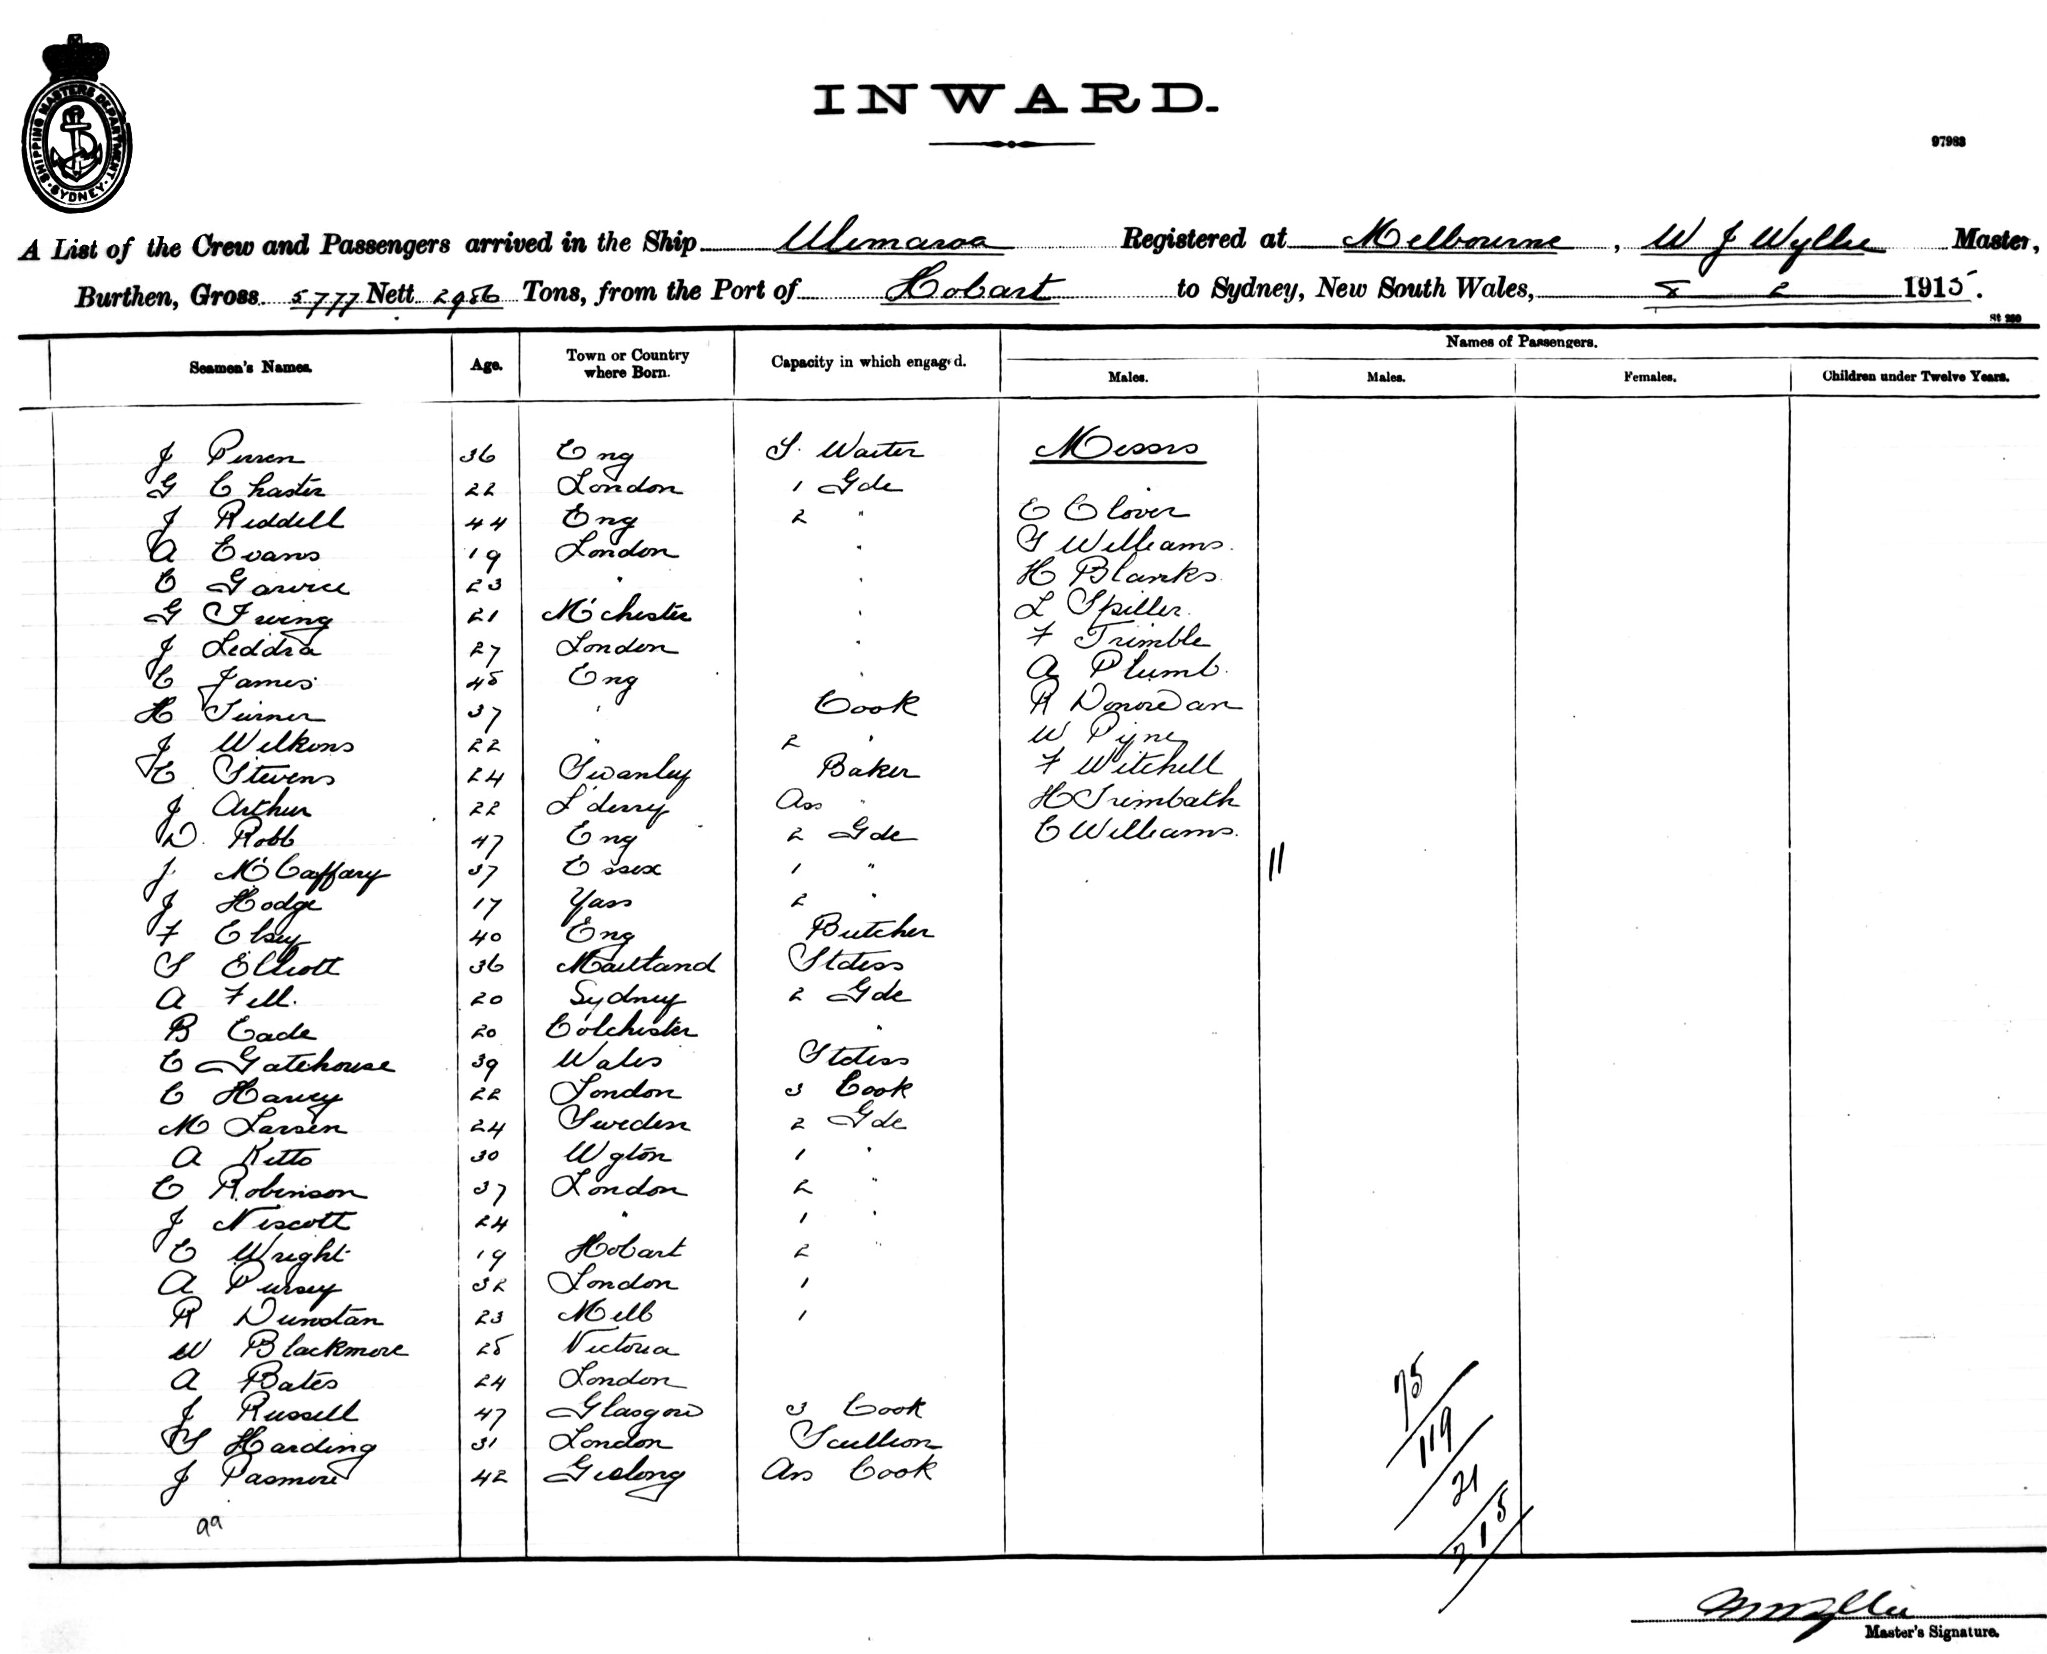 SHIPPING MASTERS DEPARTMENT · SYDNEY ·
INWARD.
97983
A List of the Crew and Passengers arrived in the Ship Ulimaroa Registered at Melbourne , W J Wyllie Master,
Burthen, Gross 5777 Nett 2956 Tons, from the Port of Hobart to Sydney, New South Wales, 8 2 1915.
St 280
Seamen's Names. Age. Town or Country where Born. Capacity in which engaged. Names of Passengers.
Males. Males. Females. Children under Twelve Years.
J Perren 36 Eng S. Waiter Messrs
G Chaster 22 London 1 Gde
J Riddell 44 Eng 2 " E Clover
A Evans 19 London " S Williams.
C Garvice 23 " " H Blanks
G Irving 21 M'chester " L Spiller.
J Leddra 27 London " F Trimble
C James 45 Eng " A Plumb.
H Turner 37 " Cook R Donovan
J Wilkins 22 " 2 " W Pyne
C Stevens 24 Swanley Baker F Witchell
J Arthur 22 L'derry Ass " H Trembath
D. Robb 47 Eng 2 Gde C Williams.
J. McCaffary 37 Essex 1 " 11
J Hodge 17 Yass 2 "
F Elsey 40 Eng Butcher
S Elliott 36 Maitland Stdess
A Fell. 20 Sydney 2 Gde
B Cade 20 Colchester "
E Gatehouse 39 Wales Stdess
C Harvey 22 London 3 Cook
M Larsen 24 Sweden 2 Gde
A Kitto 30 Wgton 1 "
C Robinson 37 London 2 "
J Niscott 24 " 1 "
E Wright 19 Hobart 2 "
A Pursey 32 London 1
R Dunstan 23 Melb 1
W Blackmore 25 Victoria
A Bates 24 London 75
J Russell 47 Glasgow 3 Cook
S Harding 31 London Scullion 119
J Pasmore 42 Geelong Ass Cook 21
99 215
WJWyllie
Master's Signature.